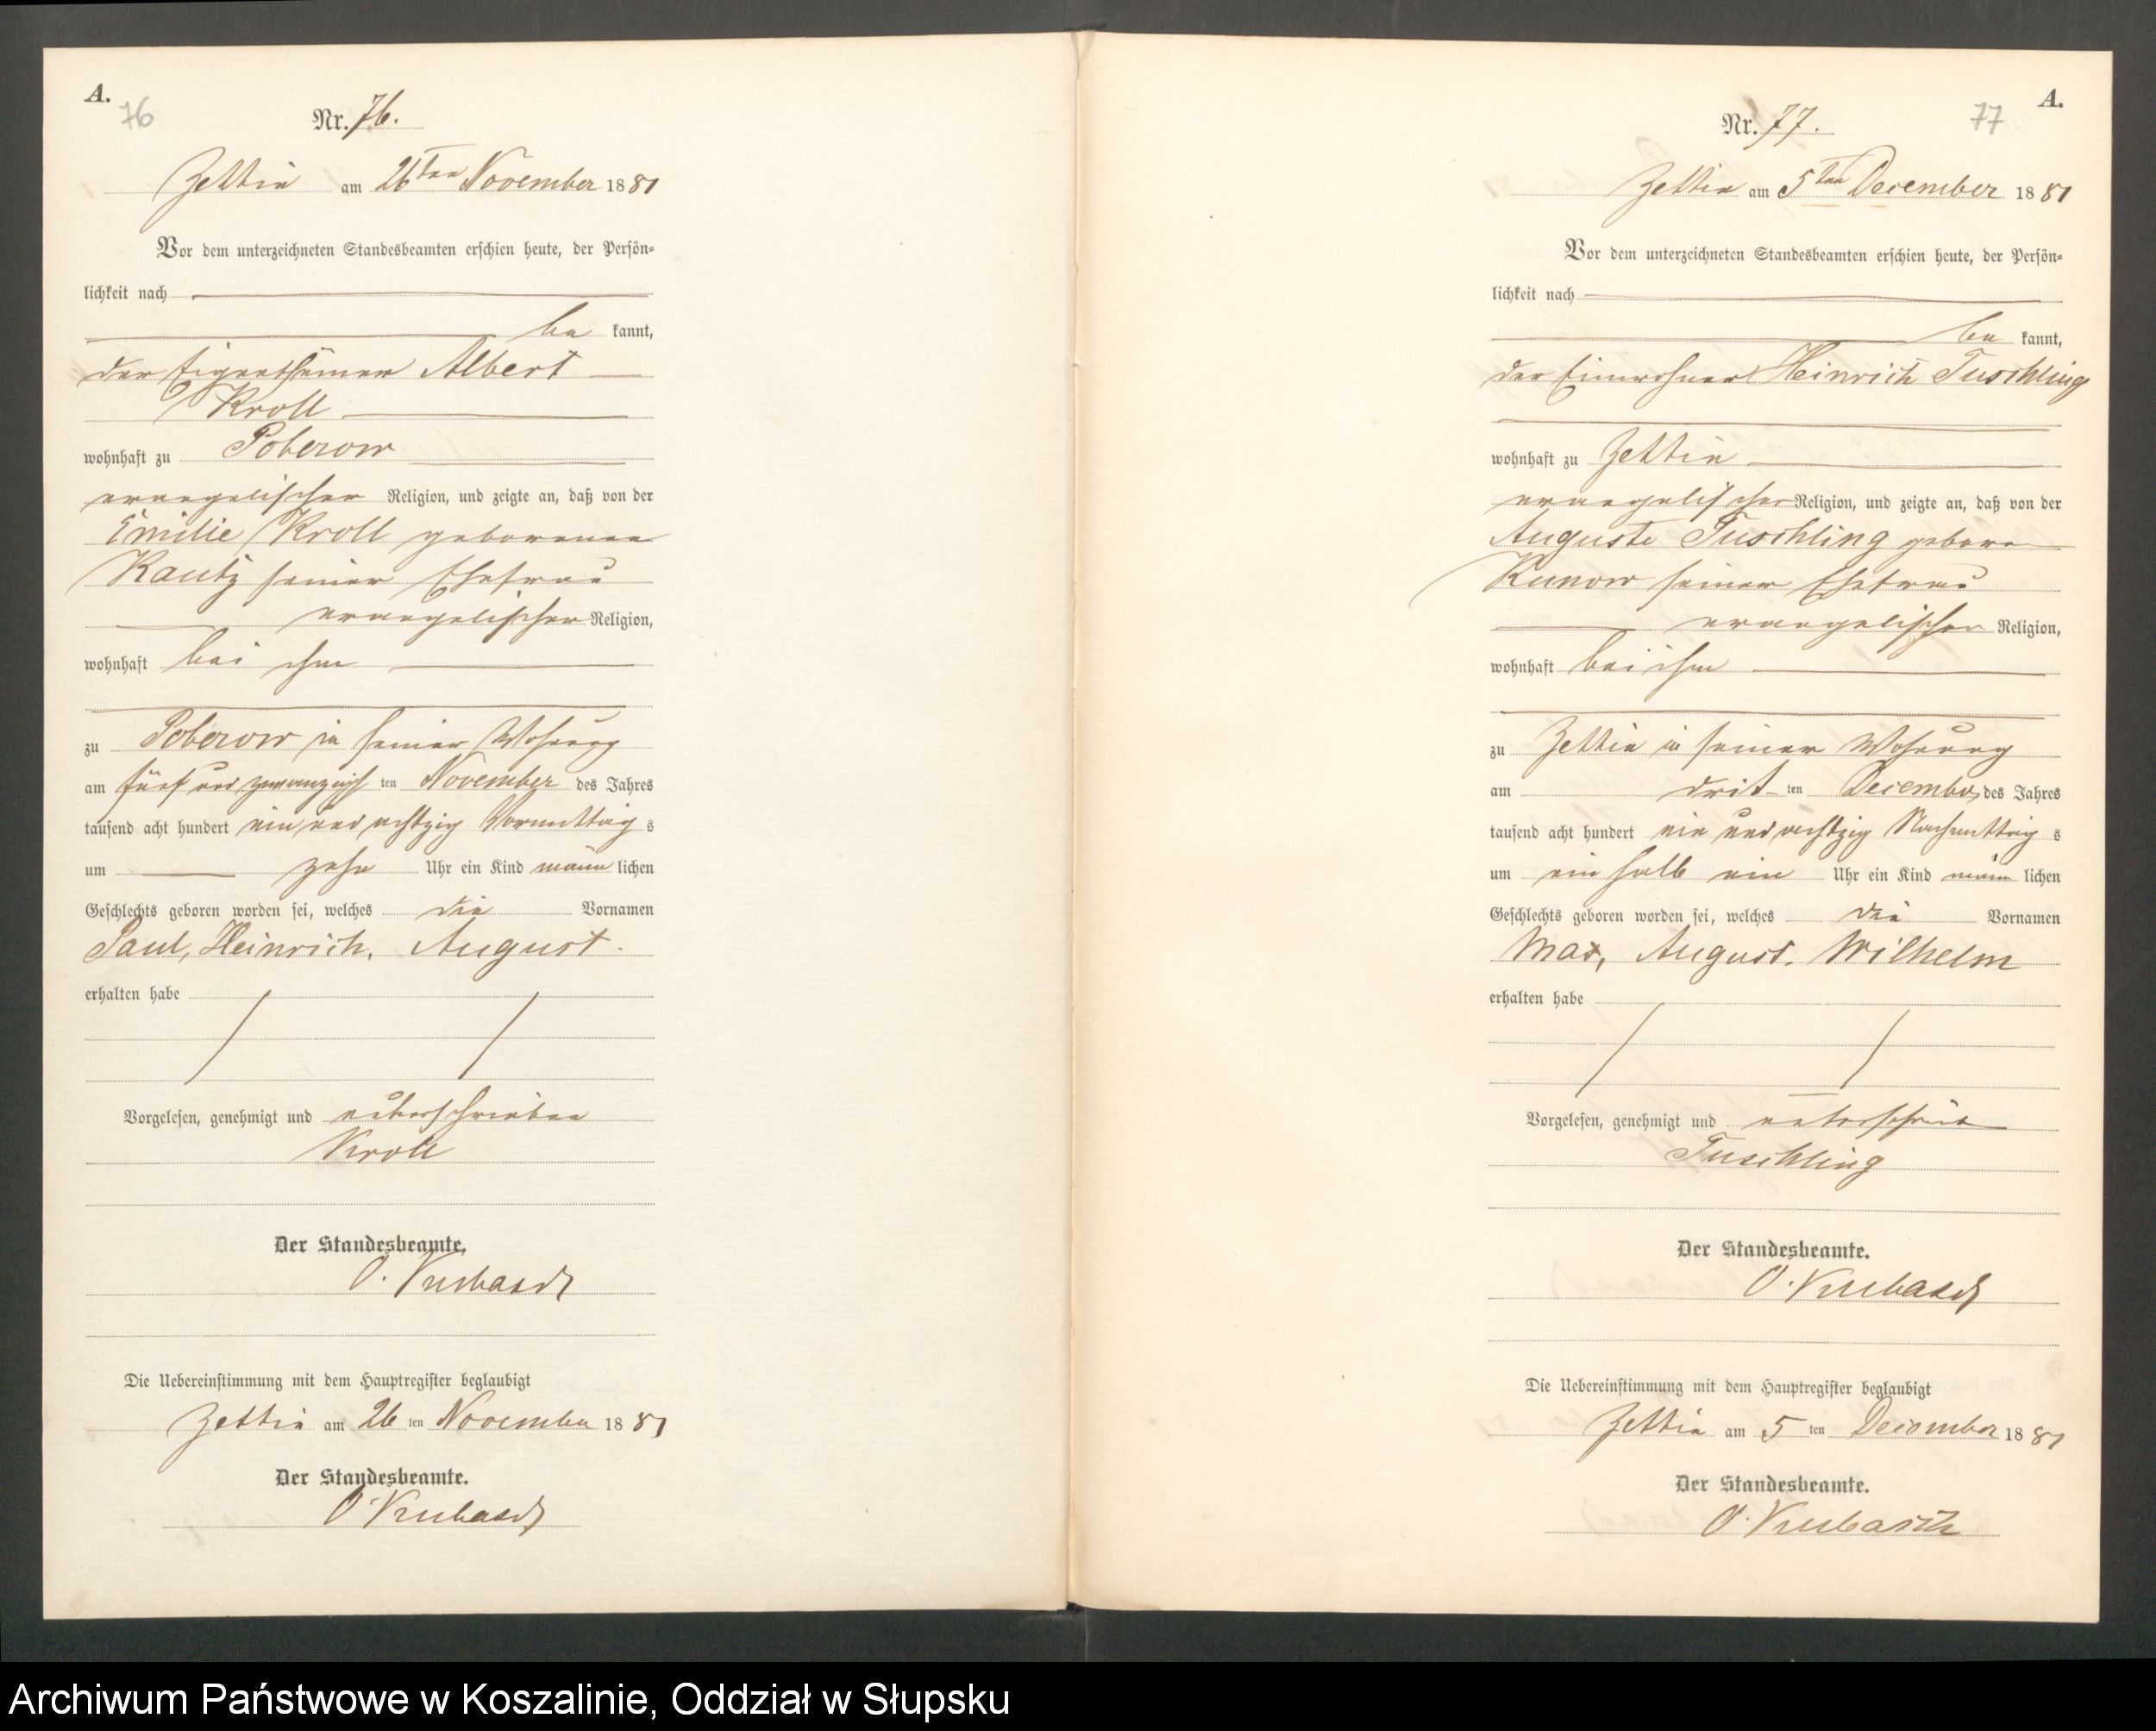 A.
76
Nr. 76.
Zettin am 26ten November 1881
Vor dem unterzeichneten Standesbeamten erschien heute, der Persön-
lichkeit nach
be kannt,
der Eigenthümer Albert
Kroll
wohnhaft zu Poberow
evangelischer Religion, und zeigte an, daß von der
Emilie Kroll geborenen
Kautz seiner Ehefrau
evangelischer Religion,
wohnhaft bei ihm
zu Poberow in seiner Wohnung
am fünf und zwanzigsten November des Jahres
tausend acht hundert ein und achtzig Vormittag s
um zehn Uhr ein Kind männ lichen
Geschlechts geboren worden sei, welches die Vornamen
Paul, Heinrich, August.
erhalten habe
Vorgelesen, genehmigt und unterschrieben
Kroll
Der Standesbeamte.
O. Kubasch
Die Uebereinstimmung mit dem Hauptregister beglaubigt
Zettin am 26 ten November 1881
Der Standesbeamte.
O. Kubasch
A.
77
Nr. 77.
Zettin am 5ten December 1881
Vor dem unterzeichneten Standesbeamten erschien heute, der Persön-
lichkeit nach
be kannt,
der Einwohner Heinrich Tuschling
wohnhaft zu Zettin
evangelischer Religion, und zeigte an, daß von der
Auguste Tuschling geboren
Kunow seiner Ehefrau
evangelischer Religion,
wohnhaft bei ihm
zu Zettin in seiner Wohnung
am drit ten December des Jahres
tausend acht hundert ein und achtzig Nachmittag s
um ein halb ein Uhr ein Kind männ lichen
Geschlechts geboren worden sei, welches die Vornamen
Max, August. Wilhelm
erhalten habe
Vorgelesen, genehmigt und
Tuschling
Der Standesbeamte.
O. Kubasch
Die Uebereinstimmung mit dem Hauptregister beglaubigt
Zettin am 5 ten December 1881
Der Standesbeamte.
O. Kubasch
Archiwum Państwowe w Koszalinie, Oddział w Słupsku